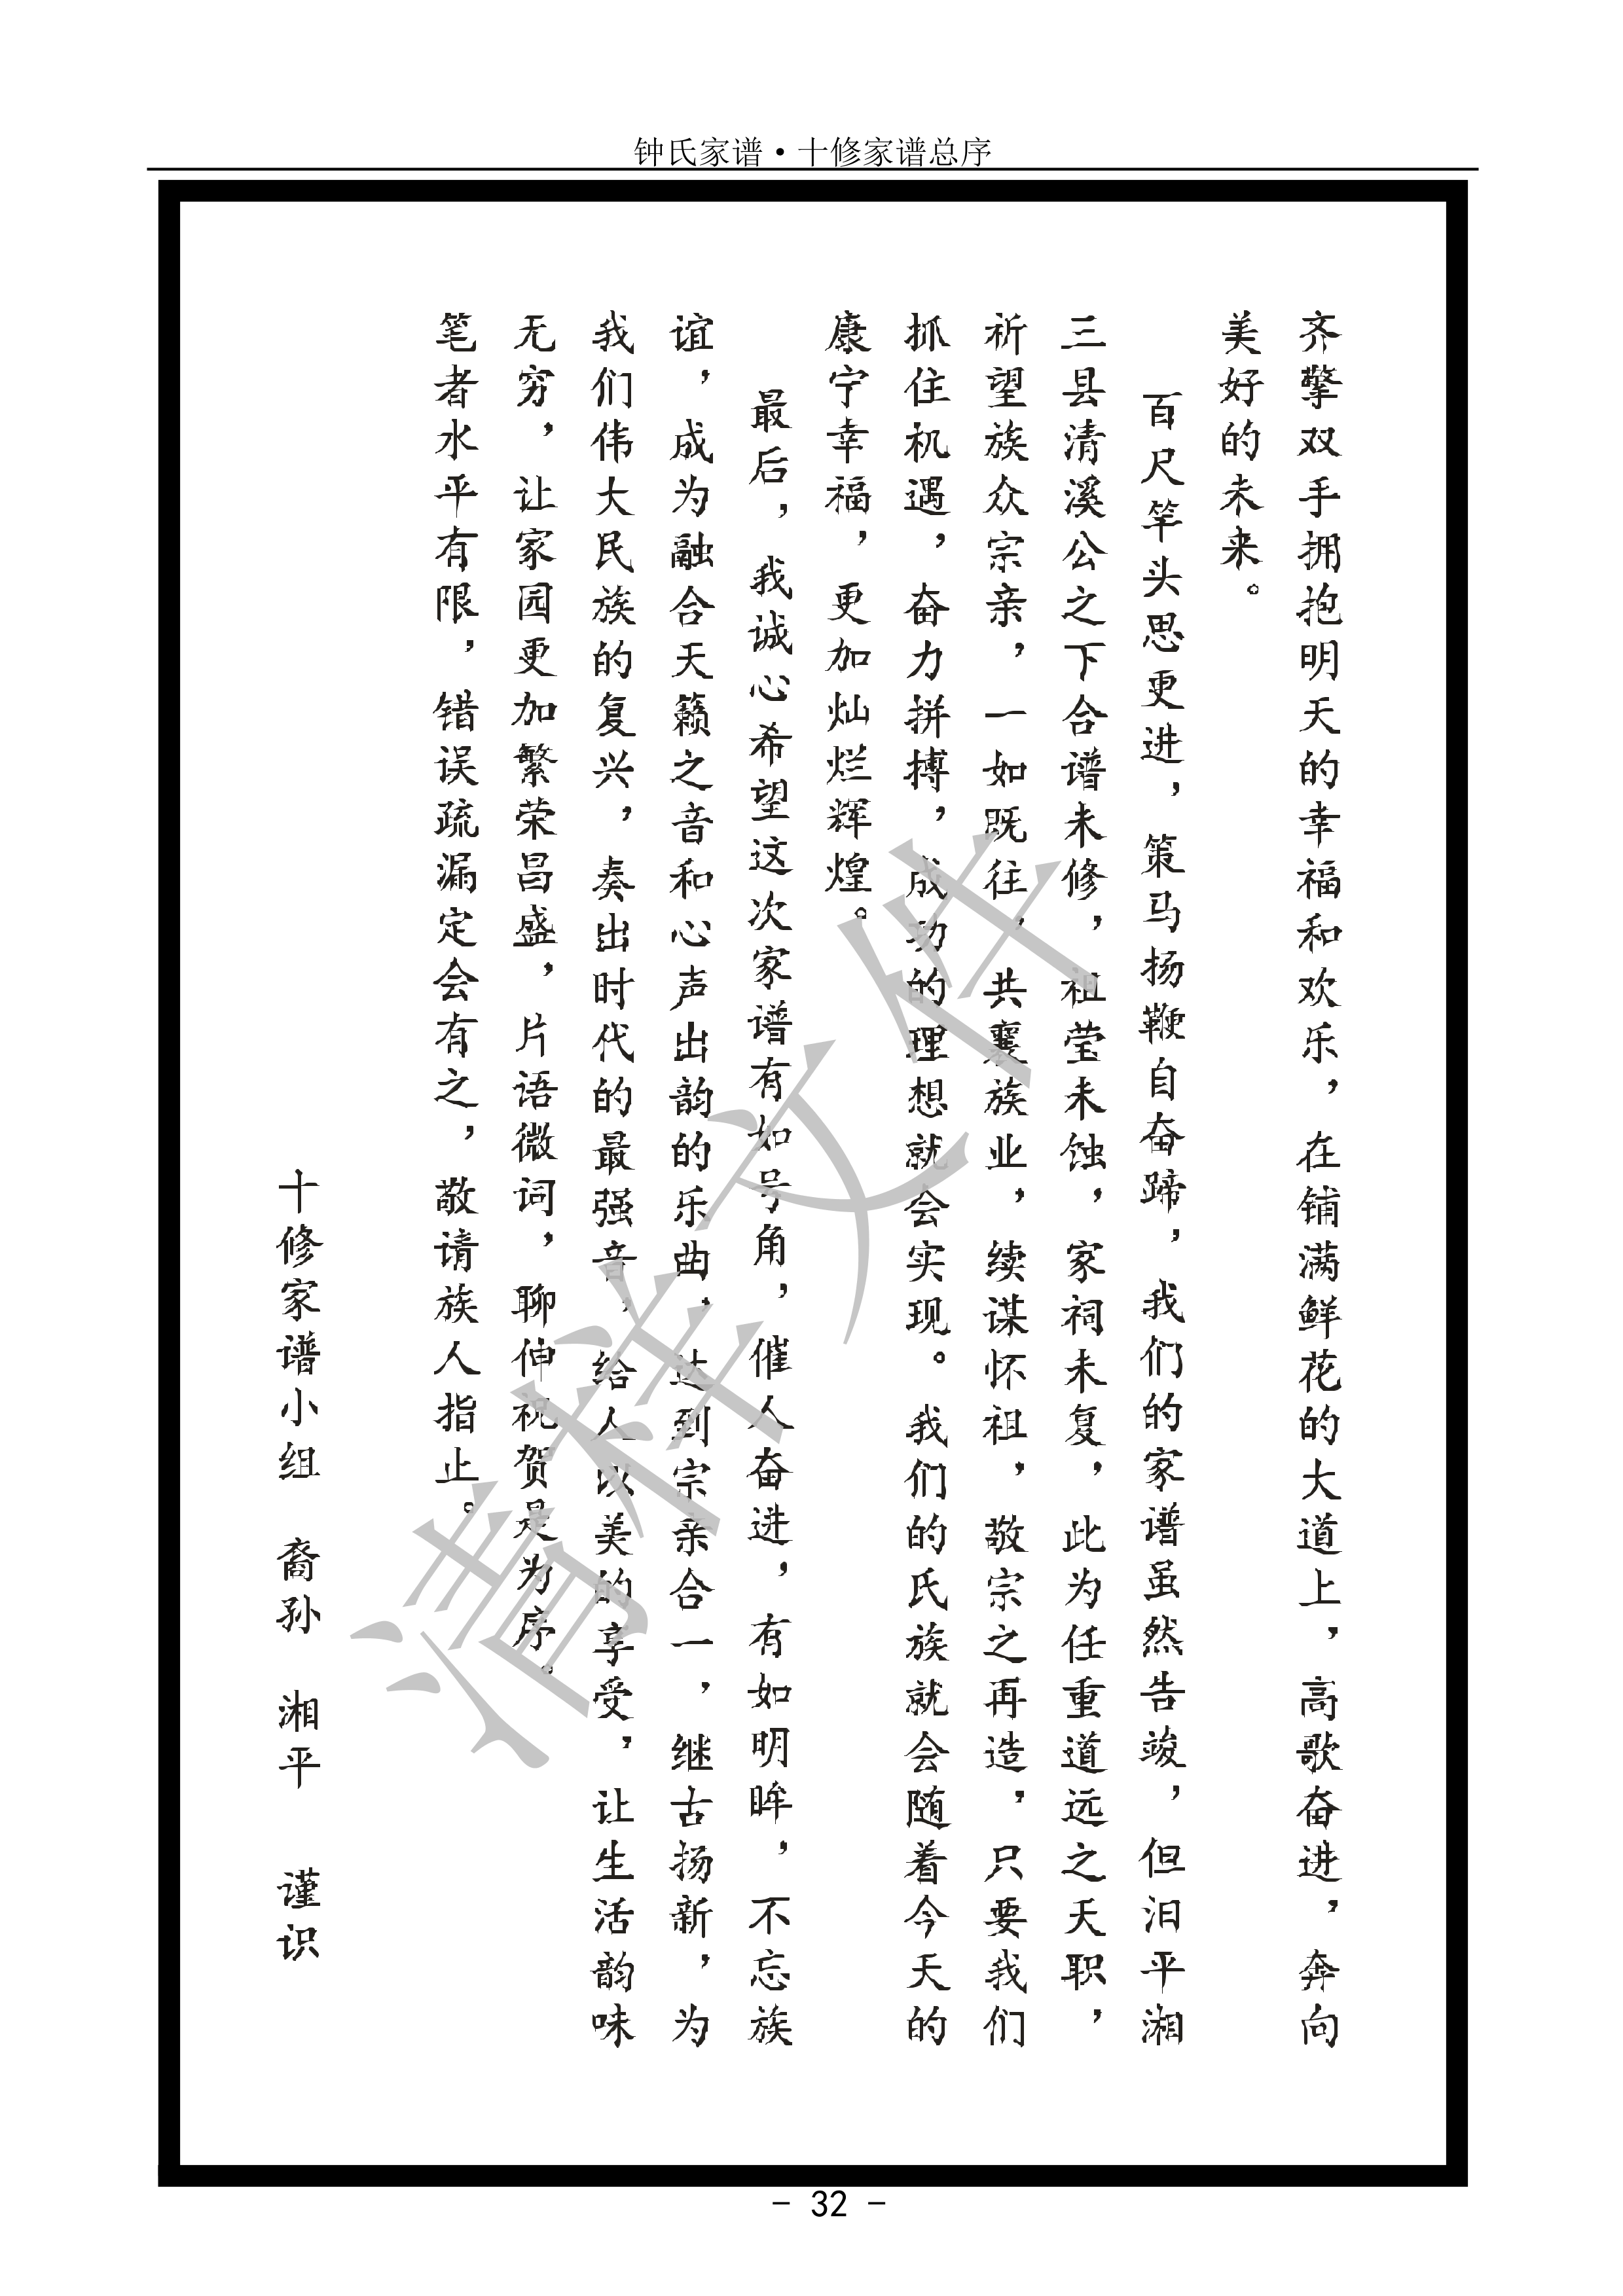 钟氏家谱·十修家谱总序
齐擎双手拥抱明天的幸福和欢乐，在铺满鲜花的大道上，高歌奋进，奔向
美好的未来。
百尺竿头思更进，策马扬鞭自奋蹄，我们的家谱虽然告竣，但汨平湘
三县清溪公之下合谱未修，祖茔未蚀，家祠未复，此为任重道远之天职，
祈望族众宗亲，一如既往，共襄族业，续谋怀祖，敬宗之再造，只要我们
抓住机遇，奋力拼搏，成功的理想就会实现。我们的氏族就会随着今天的
康宁幸福，更加灿烂辉煌。
最后，我诚心希望这次家谱有如号角，催人奋进，有如明眸，不忘族
谊，成为融合天籁之音和心声出韵的乐曲，达到宗亲合一，继古扬新，为
我们伟大民族的复兴，奏出时代的最强音，给人以美的享受，让生活韵味
无穷，让家园更加繁荣昌盛，片语微词，聊伸祝贺是为序。
笔者水平有限，错误疏漏定会有之，敬请族人指止。
十修家谱小组 裔孙 湘平 谨识
清样文件
- 32 -